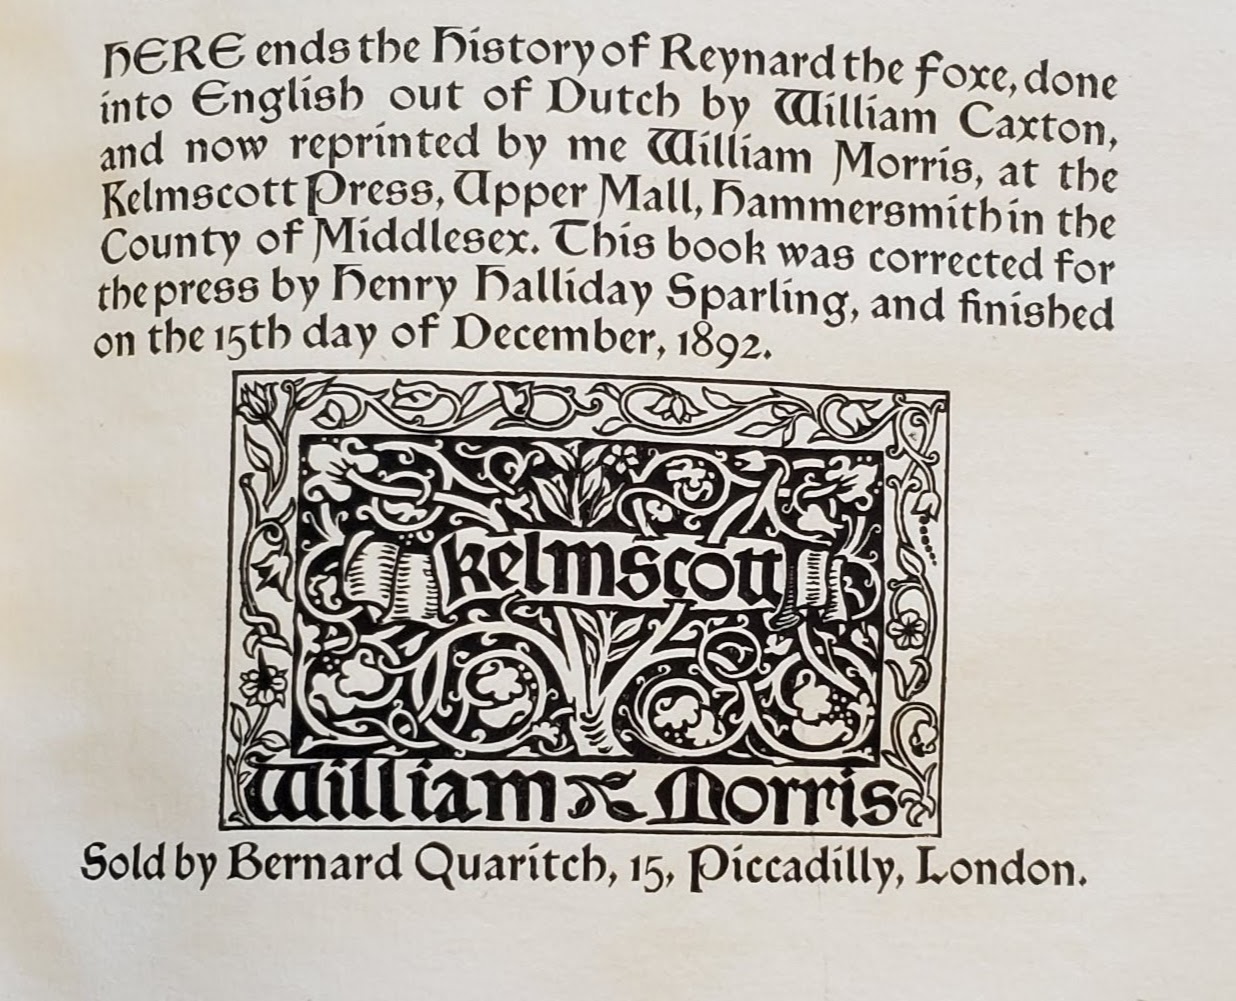 HERE ends the History of Reynard the Foxe, done
into English out of Dutch by William Caxton,
and now reprinted by me William Morris, at the
Kelmscott Press, Upper Mall, Hammersmith in the
County of Middlesex. This book was corrected for
the press by Henry Halliday Sparling, and finished
on the 15th day of December, 1892.
Kelmscott
William Morris
Sold by Bernard Quaritch, 15, Piccadilly, London.